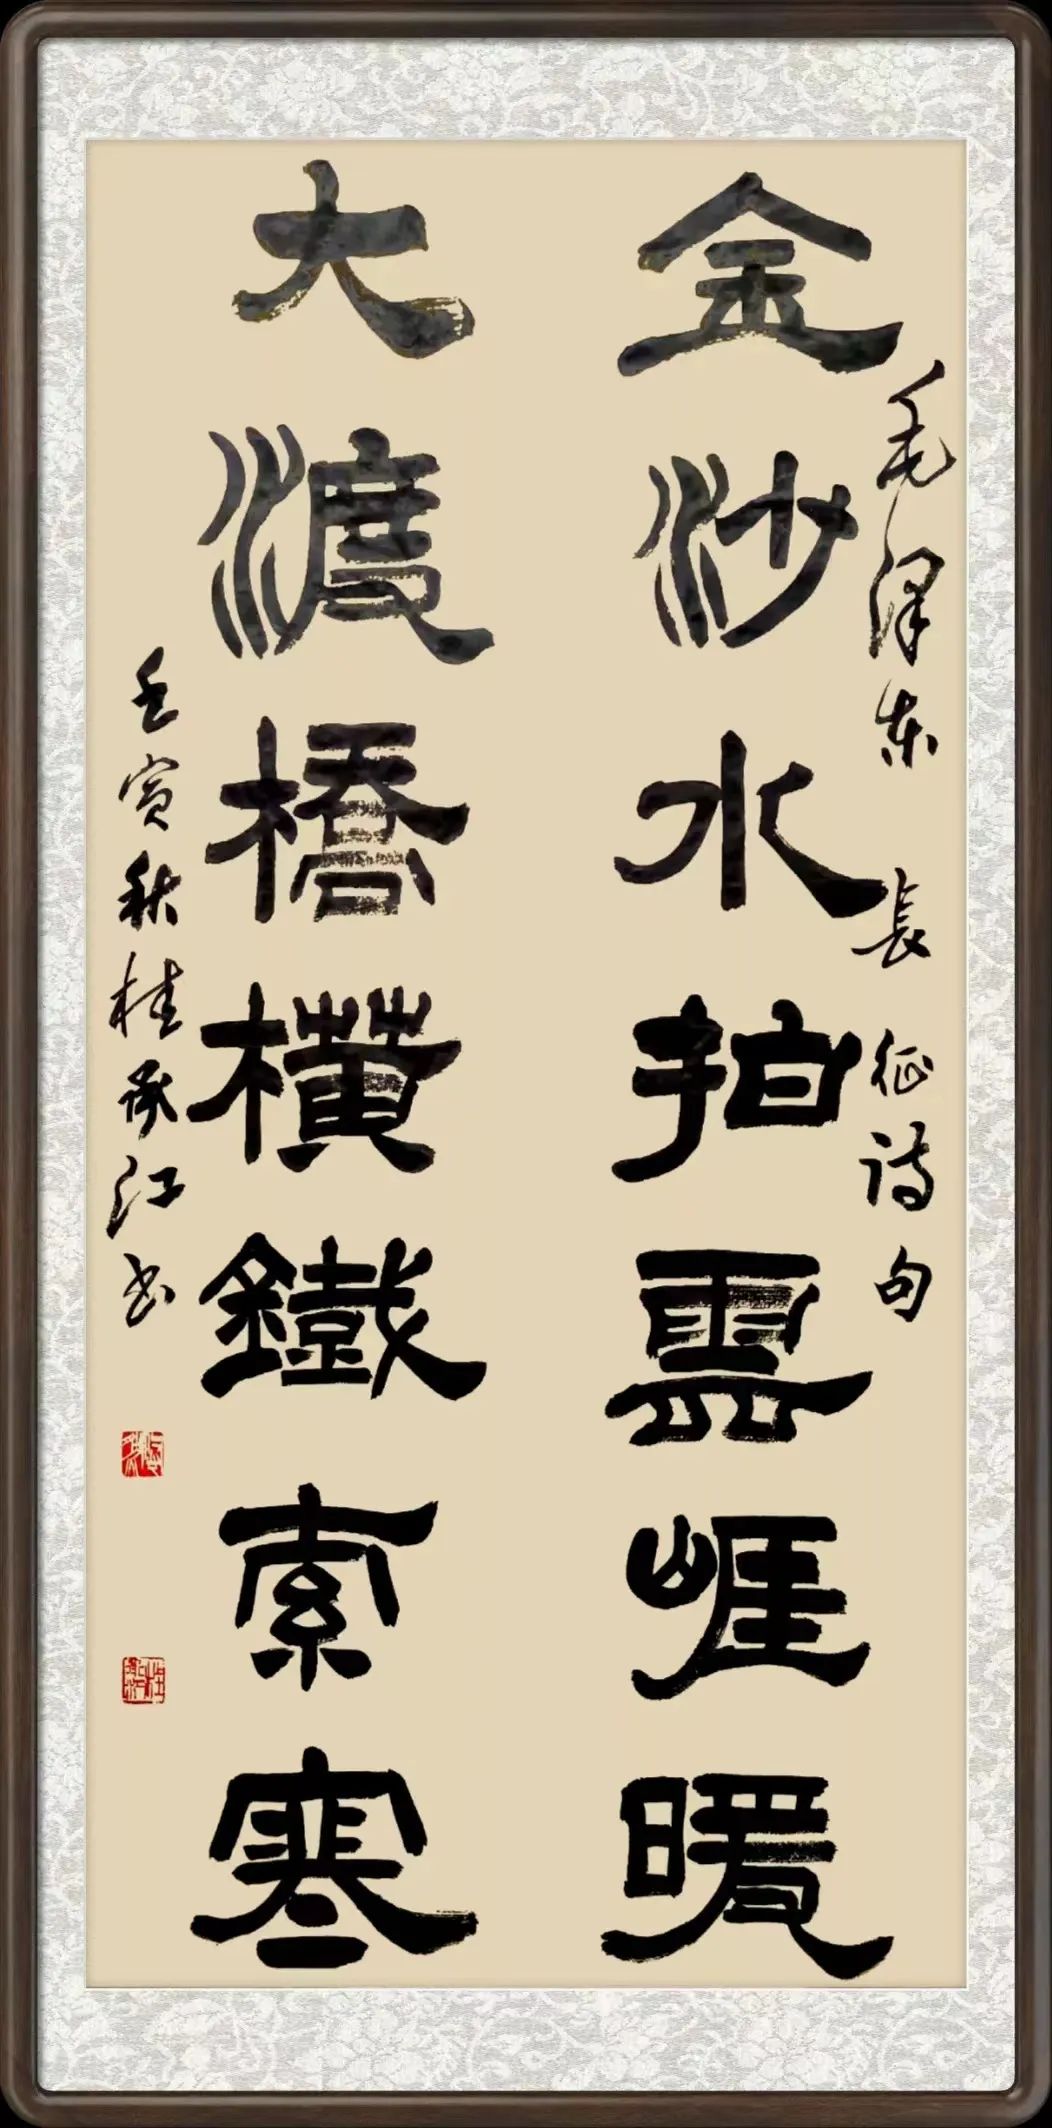 金沙水拍雲崖暖
毛泽东 長征诗句
大渡橋橫鐵索寒
壬寅秋桂承江书